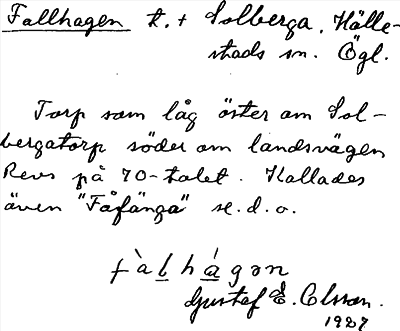 Fallhagen t. t Solberga. Hälle-
stads sn. Ögl.
Torp som låg öster om Sol-
bergatorp söder om landsvägen
Revs på 70-talet. Kallades
även "Fåfänga" se.d.o.
fàlhágən
Gustaf E. Olsson.
1927